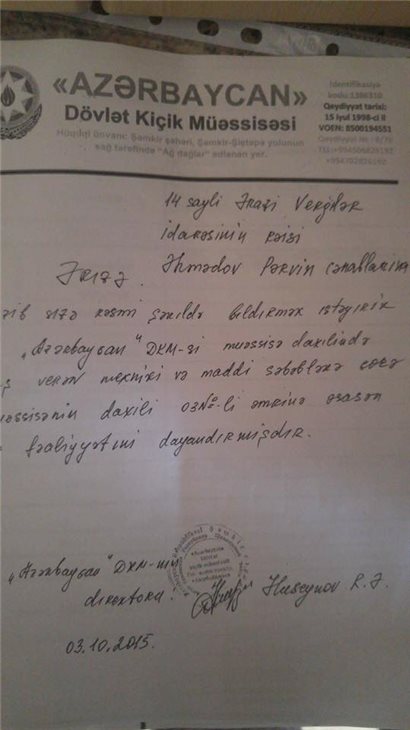 «AZƏRBAYCAN»
Dövlət Kiçik Müəssisəsi
Hüquqi ünvanı: Şəmkir şəhəri, Şəmkir-Şiştəpə yolunun
sağ tərəfində "Ağ dağlar" adlanan yer.
İdentifikasiya
kodu:
Qeydiyyat tarixi:
15 iyul 1998-ci il
VÖEN: 8500194551
Qeydiyyat №
14 sayli Ərazi Vergilər
idarəsinin rəisi
Əhmədov Pərvin cənablarına
ƏRİZƏ.
sizə rəsmi şəkildə bildirmək istəyirik
"Azərbaycan" DKM-si müəssisə daxilində
verən texniki və maddi səbəblərə görə
daxili 03№-li əmrinə əsasən
fəaliyyətini dayandırmışdır.
"Azərbaycan" DKM-nin
direktoru: Huseynov R.Ə.
03.10.2015.